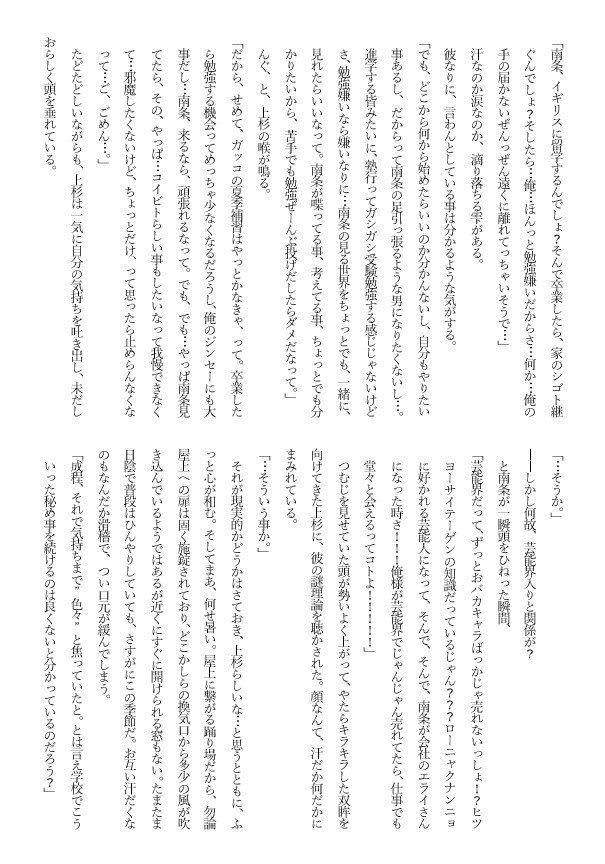 「南条、イギリスに留学するんでしょ？そんで卒業したら、家のシゴト継
ぐんでしょ？そしたら…俺…ほんっと勉強嫌いだからさ…何か…俺の
手の届かないぜんっぜん遠くに離れてっちゃいそうで…」
汗なのか涙なのか、滴り落ちる雫がある。
彼なりに、言わんとしている事は分かるような気がする。
「でも、どこから何から始めたらいいのか分かんないし、自分もやりたい
事あるし、だからって南条の足引っ張るような男になりたくないし…。
進学する皆みたいに、塾行ってガシガシ受験勉強する感じじゃないけど
さ、勉強嫌いなら嫌いなりに…南条の見る世界をちょっとでも、一緒に、
見れたらいいなって。南条が喋ってる事、考えてる事、ちょっとでも分
かりたいから、苦手でも勉強ぜーんぶ投げだしたらダメだなって。」
んぐ、と、上杉の喉が鳴る。
「だから、せめて、ガッコの夏季補習はやっとかなきゃ、って。卒業した
ら勉強する機会ってめっちゃ少なくなるだろうし、俺のジンセーにも大
事だし…南条、来るなら、頑張れるなって。でも、でも…やっぱ南条見
てたら、その、やっぱ…コイビトらしい事もしたいなって我慢できなく
て…邪魔したくないけど、ちょっとだけ、って思ったら止めらんなくな
って…ご、ごめん…。」
たどたどしいながらも、上杉は一気に自分の気持ちを吐き出し、未だし
おらしく頭を垂れている。
「…そうか。」
――しかし何故、芸能界入りと関係が？
と南条が一瞬頭をひねった瞬間、
「芸能界だって、ずっとおバカキャラばっかじゃ売れないっしょ！？ヒツ
ヨーサイテーゲンの知識だっているじゃん？？？ローニャクナンニョ
に好かれる芸能人になって、そんで、そんで、南条が会社のエライさん
になった時さ！！！俺様が芸能界でじゃんじゃん売れてたら、仕事でも
堂々と会えるってコトよ！！！！！！」
つむじを見せていた頭が勢いよく上がって、やたらキラキラした双眸を
向けてきた上杉に、彼の謎理論を聴かされた。顔なんて、汗だか何だかに
まみれている。
「…そういう事か。」
それが現実的かどうかはさておき、上杉らしいな…と思うとともに、ふ
っと心が和む。そしてまあ、何せ暑い。屋上に繋がる踊り場だから、勿論
屋上への扉は固く施錠されており、どこかしらの換気口から多少の風が吹
き込んでいるようではあるが近くにすぐに開けられる窓もない。たまたま
日陰で普段はひんやりしていても、さすがにこの季節だ。お互い汗だくな
のもなんだか滑稽で、つい口元が緩んでしまう。
「成程、それで気持ちまで〝色々〟と焦っていたと。とは言え学校でこう
いった秘め事を続けるのは良くないと分かっているのだろう？」